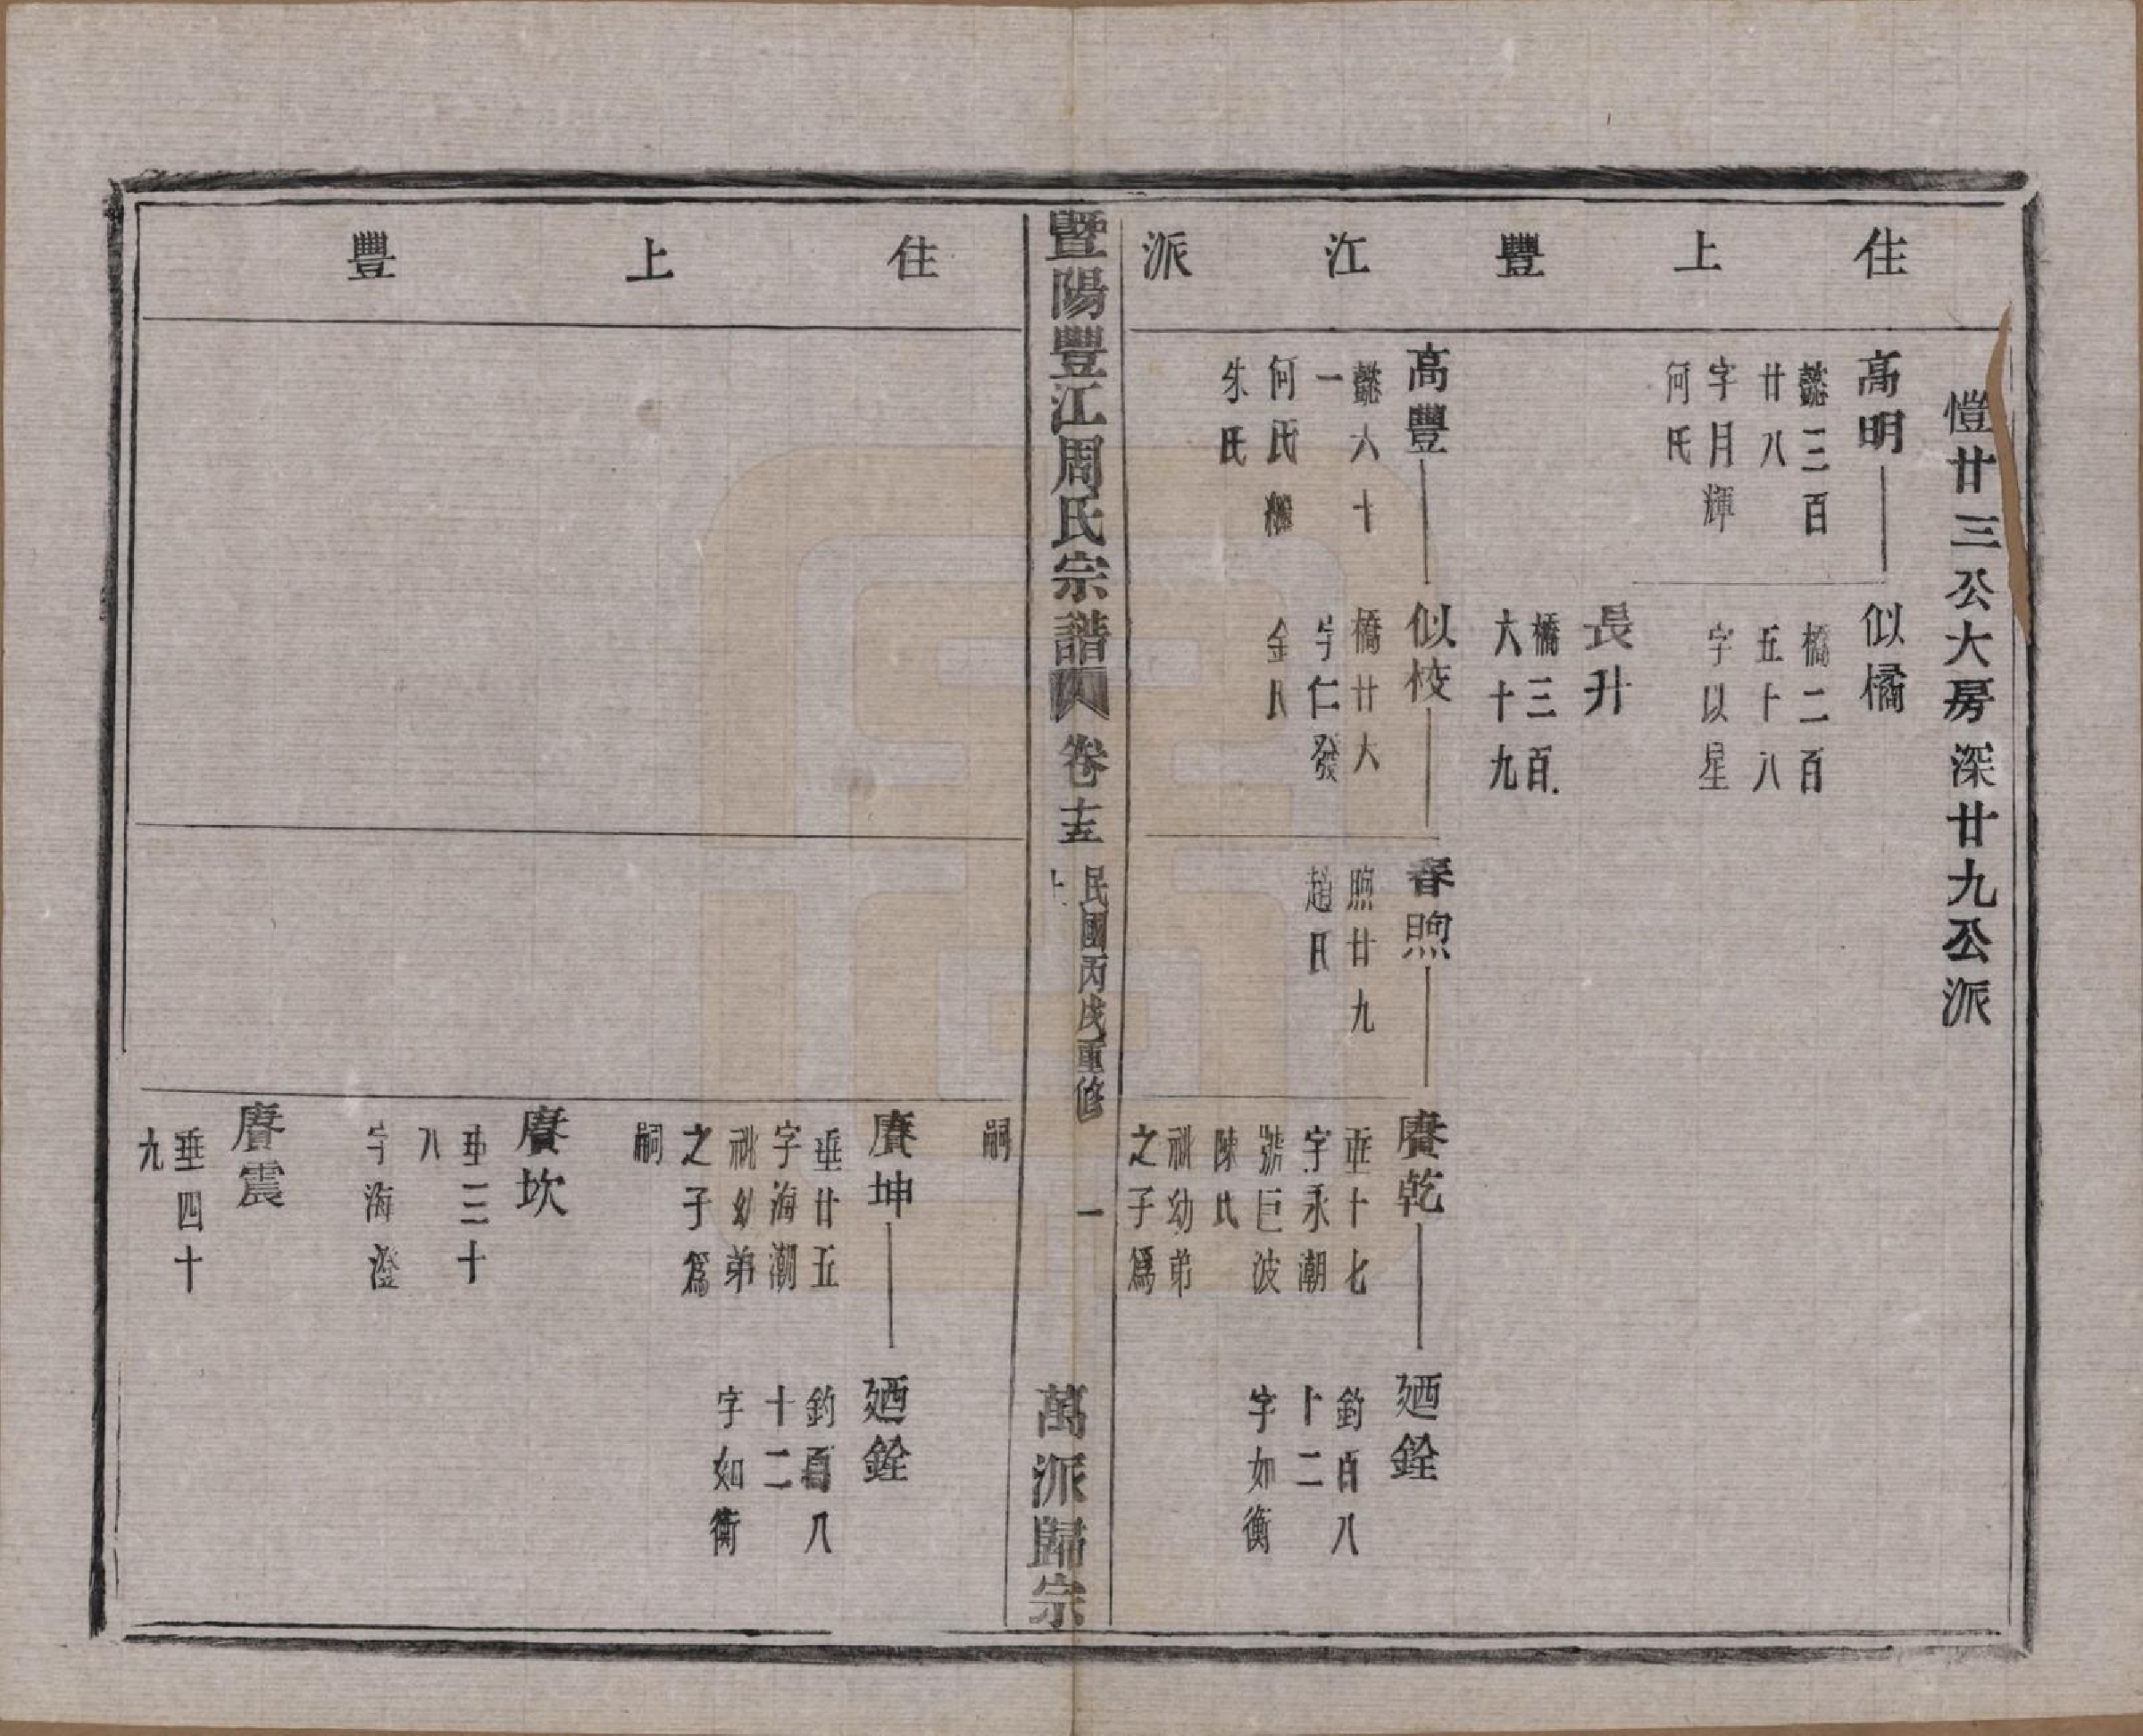 住上豐江派
愷廿三公大房深廿九公派
高明
懿三百
廿八
字月輝
何氏
似橘
橋二百
五十八
字以星
長升
橋三百
六十九
高豐
懿六十
一
何氏
朱氏
似校
橋廿六
字仁發
金氏
春煦
煦廿九
趙氏
賡乾
垂十七
字永潮
號巨波
陳氏
祧幼弟
之子爲
嗣
廼銓
鈞百八
十二
字如衡
暨陽豐江周氏宗譜
卷十五
民國丙戌重修
一
萬派歸宗
住上豐
賡坤
垂廿五
字海潮
祧幼弟
之子爲
嗣
廼銓
鈞百八
十二
字如衡
賡坎
垂三十
八
字海澄
賡震
垂四十
九